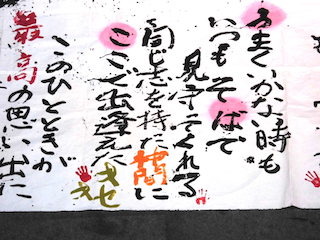 うまくいかな時も
いつもそばで
見守てくれる
同じ志を持た仲間に
ここで出逢えた
させ
このひとときが
最高の思い出に